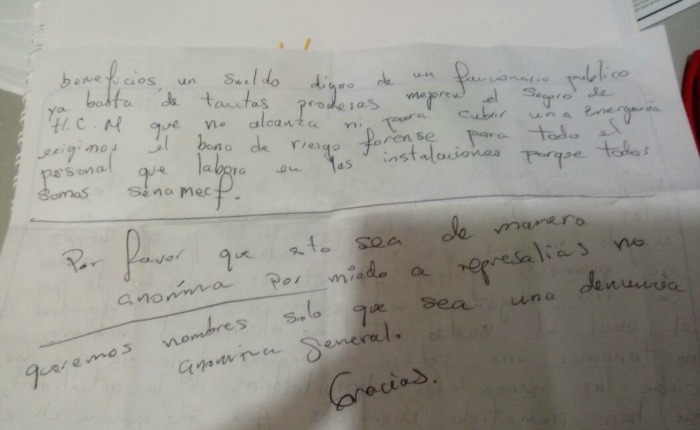 beneficios, un sueldo digno de un funcionario publico
ya basta de tantas promesas mejoren el Seguro de
H.C.M que no alcanza ni para cubrir una Emergencia
exigimos el bono de riesgo forense para todo el
personal que labora en las instalaciones porque todos
somos senamecf.
Por favor que esto sea de manera
anonima por miedo a represalias no
queremos nombres solo que sea una denuncia
anonima general.
Gracias.